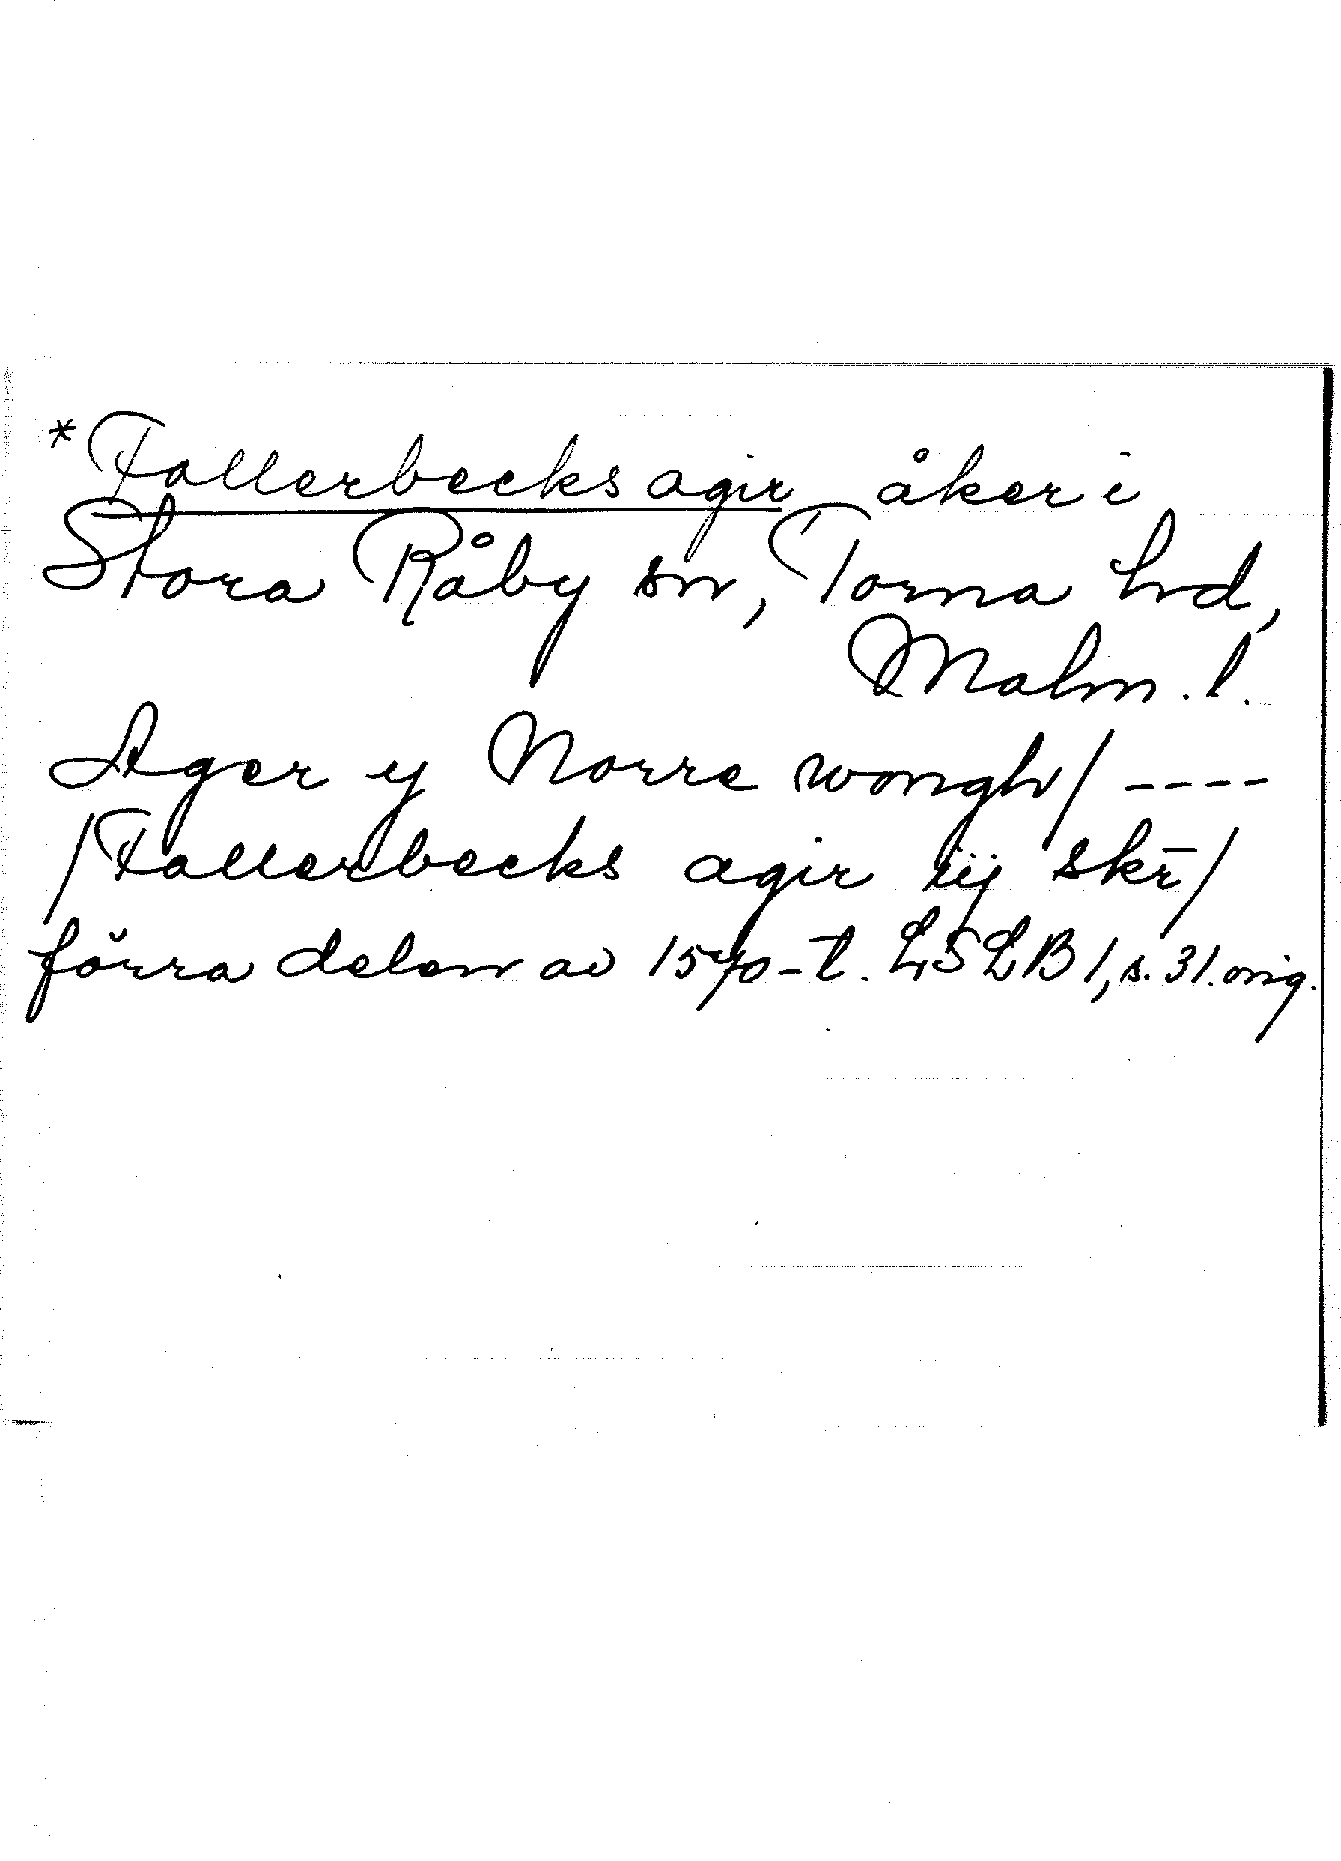 *Fallerbecks agir åker i
Stora Råby sn, Torna hd,
Malm. l.
Ager y Norre wongh/ ----
/Fallerbecks agir iij skr̄/
förra delen av 1570-t. LSLB 1, s. 31. orig.